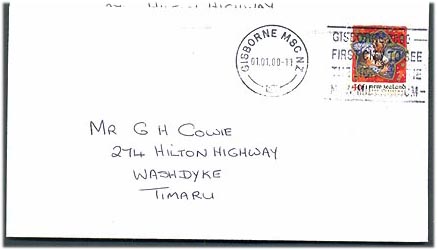 274 HILTON HIGHWAY
GISBORNE MSC NZ
01.01.00-11
GISBORNE 2000
FIRST CITY TO SEE
NEW MILLENNIUM
40c new zealand
MR G H COWIE
274 HILTON HIGHWAY
WASHDYKE
TIMARU